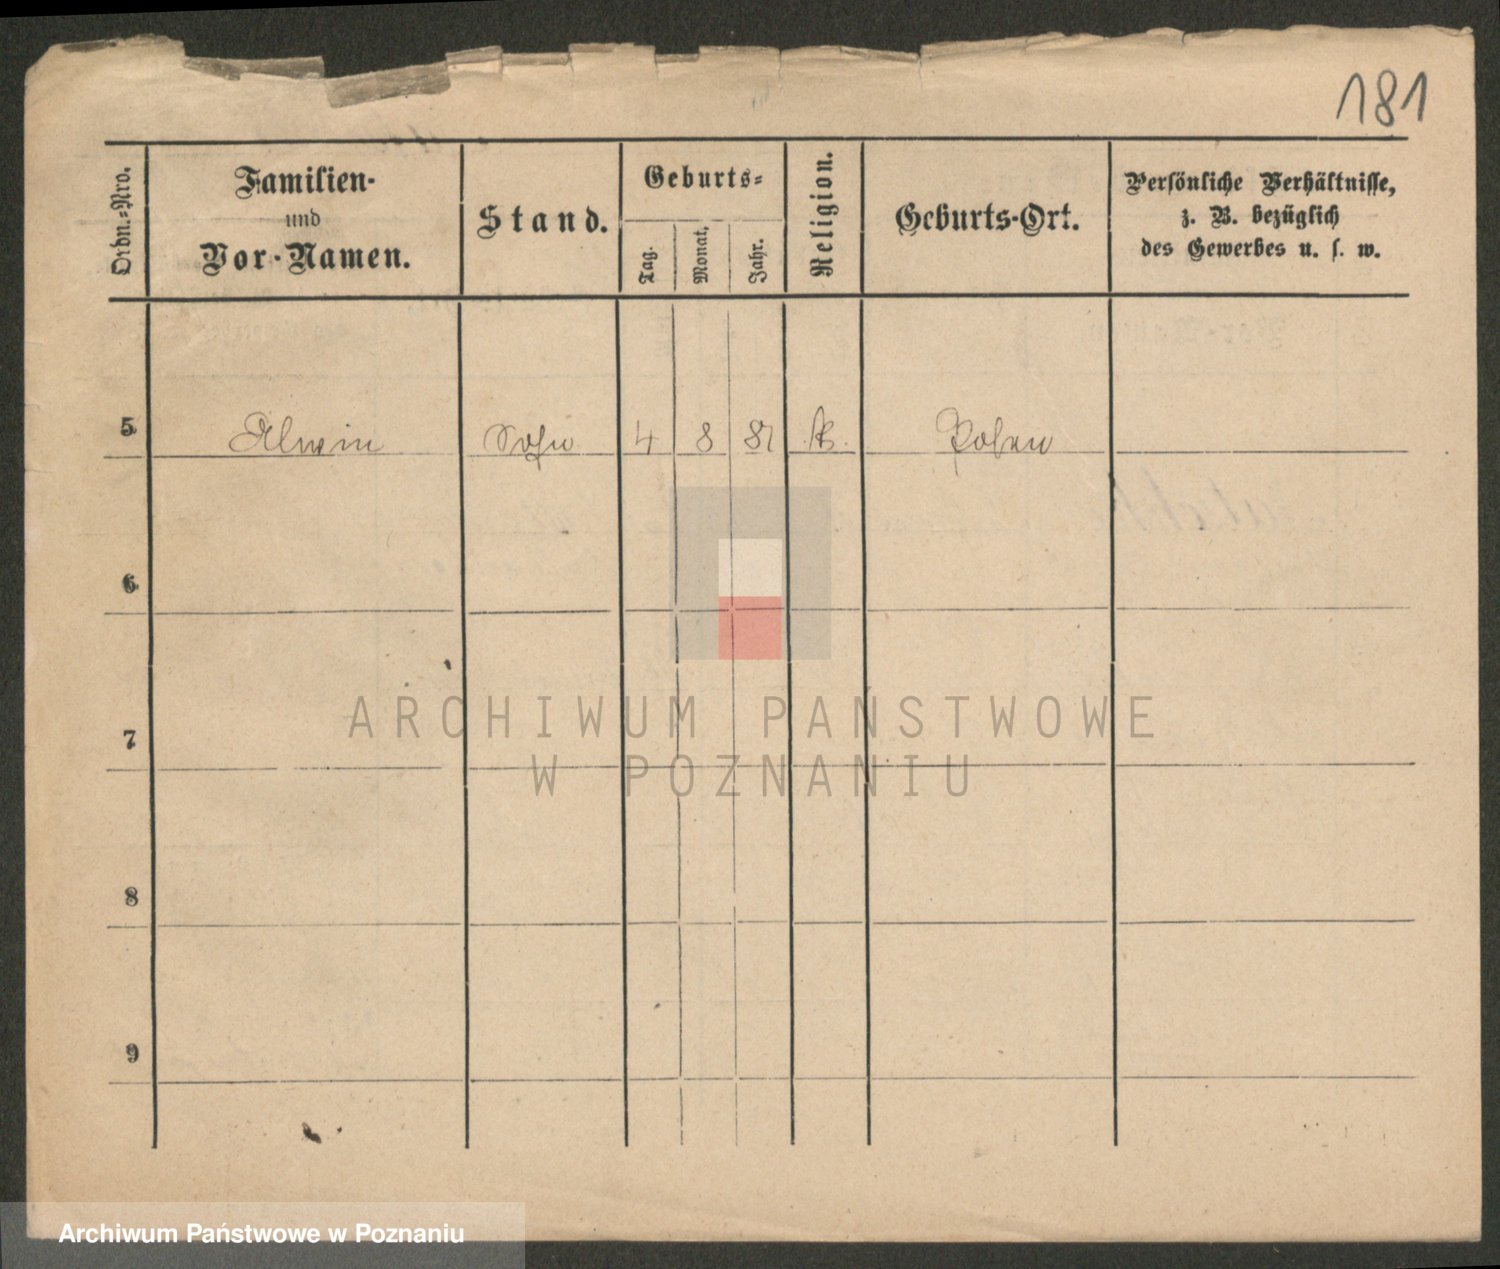 181
Ordn.-Nro.
Familien-
und
Vor-Namen.
Stand.
Geburts-
Tag.
Monat.
Jahr.
Religion.
Geburts-Ort.
Persönliche Verhältnisse,
z. B. bezüglich
des Gewerbes u. s. w.
5 Alwin Sohn 4 8 87 k. Posen
6
7
8
9
ARCHIWUM PAŃSTWOWE
W POZNANIU
Archiwum Państwowe w Poznaniu